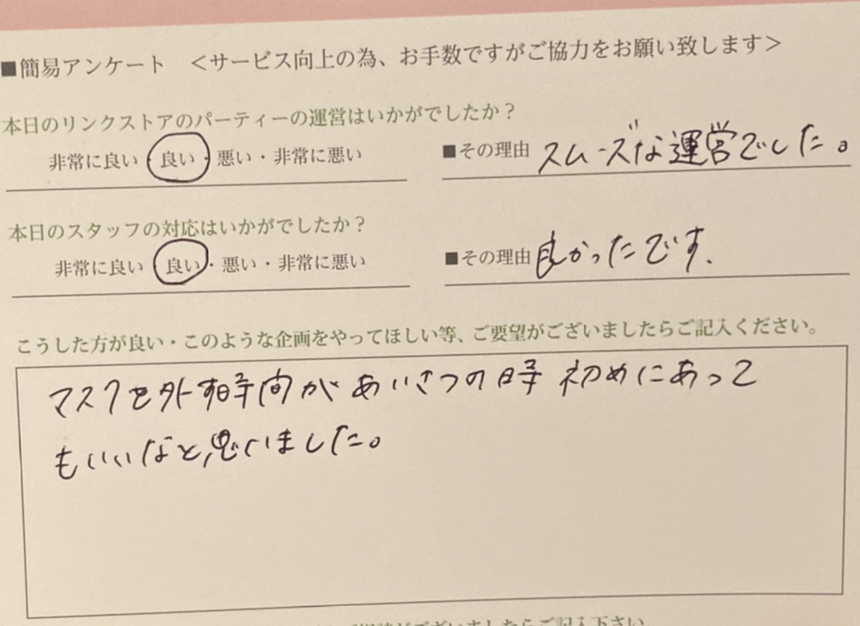 ■簡易アンケート ＜サービス向上の為、お手数ですがご協力をお願い致します＞
本日のリンクストアのパーティーの運営はいかがでしたか？
非常に良い・良い・悪い・非常に悪い ■その理由 スムーズな運営でした。
本日のスタッフの対応はいかがでしたか？
非常に良い・良い・悪い・非常に悪い ■その理由 良かったです.
こうした方が良い・このような企画をやってほしい等、ご要望がございましたらご記入ください。
マスクを外す時間が あいさつの時 初めにあって
もいいなと思いました。
ございましたらご記入下さい